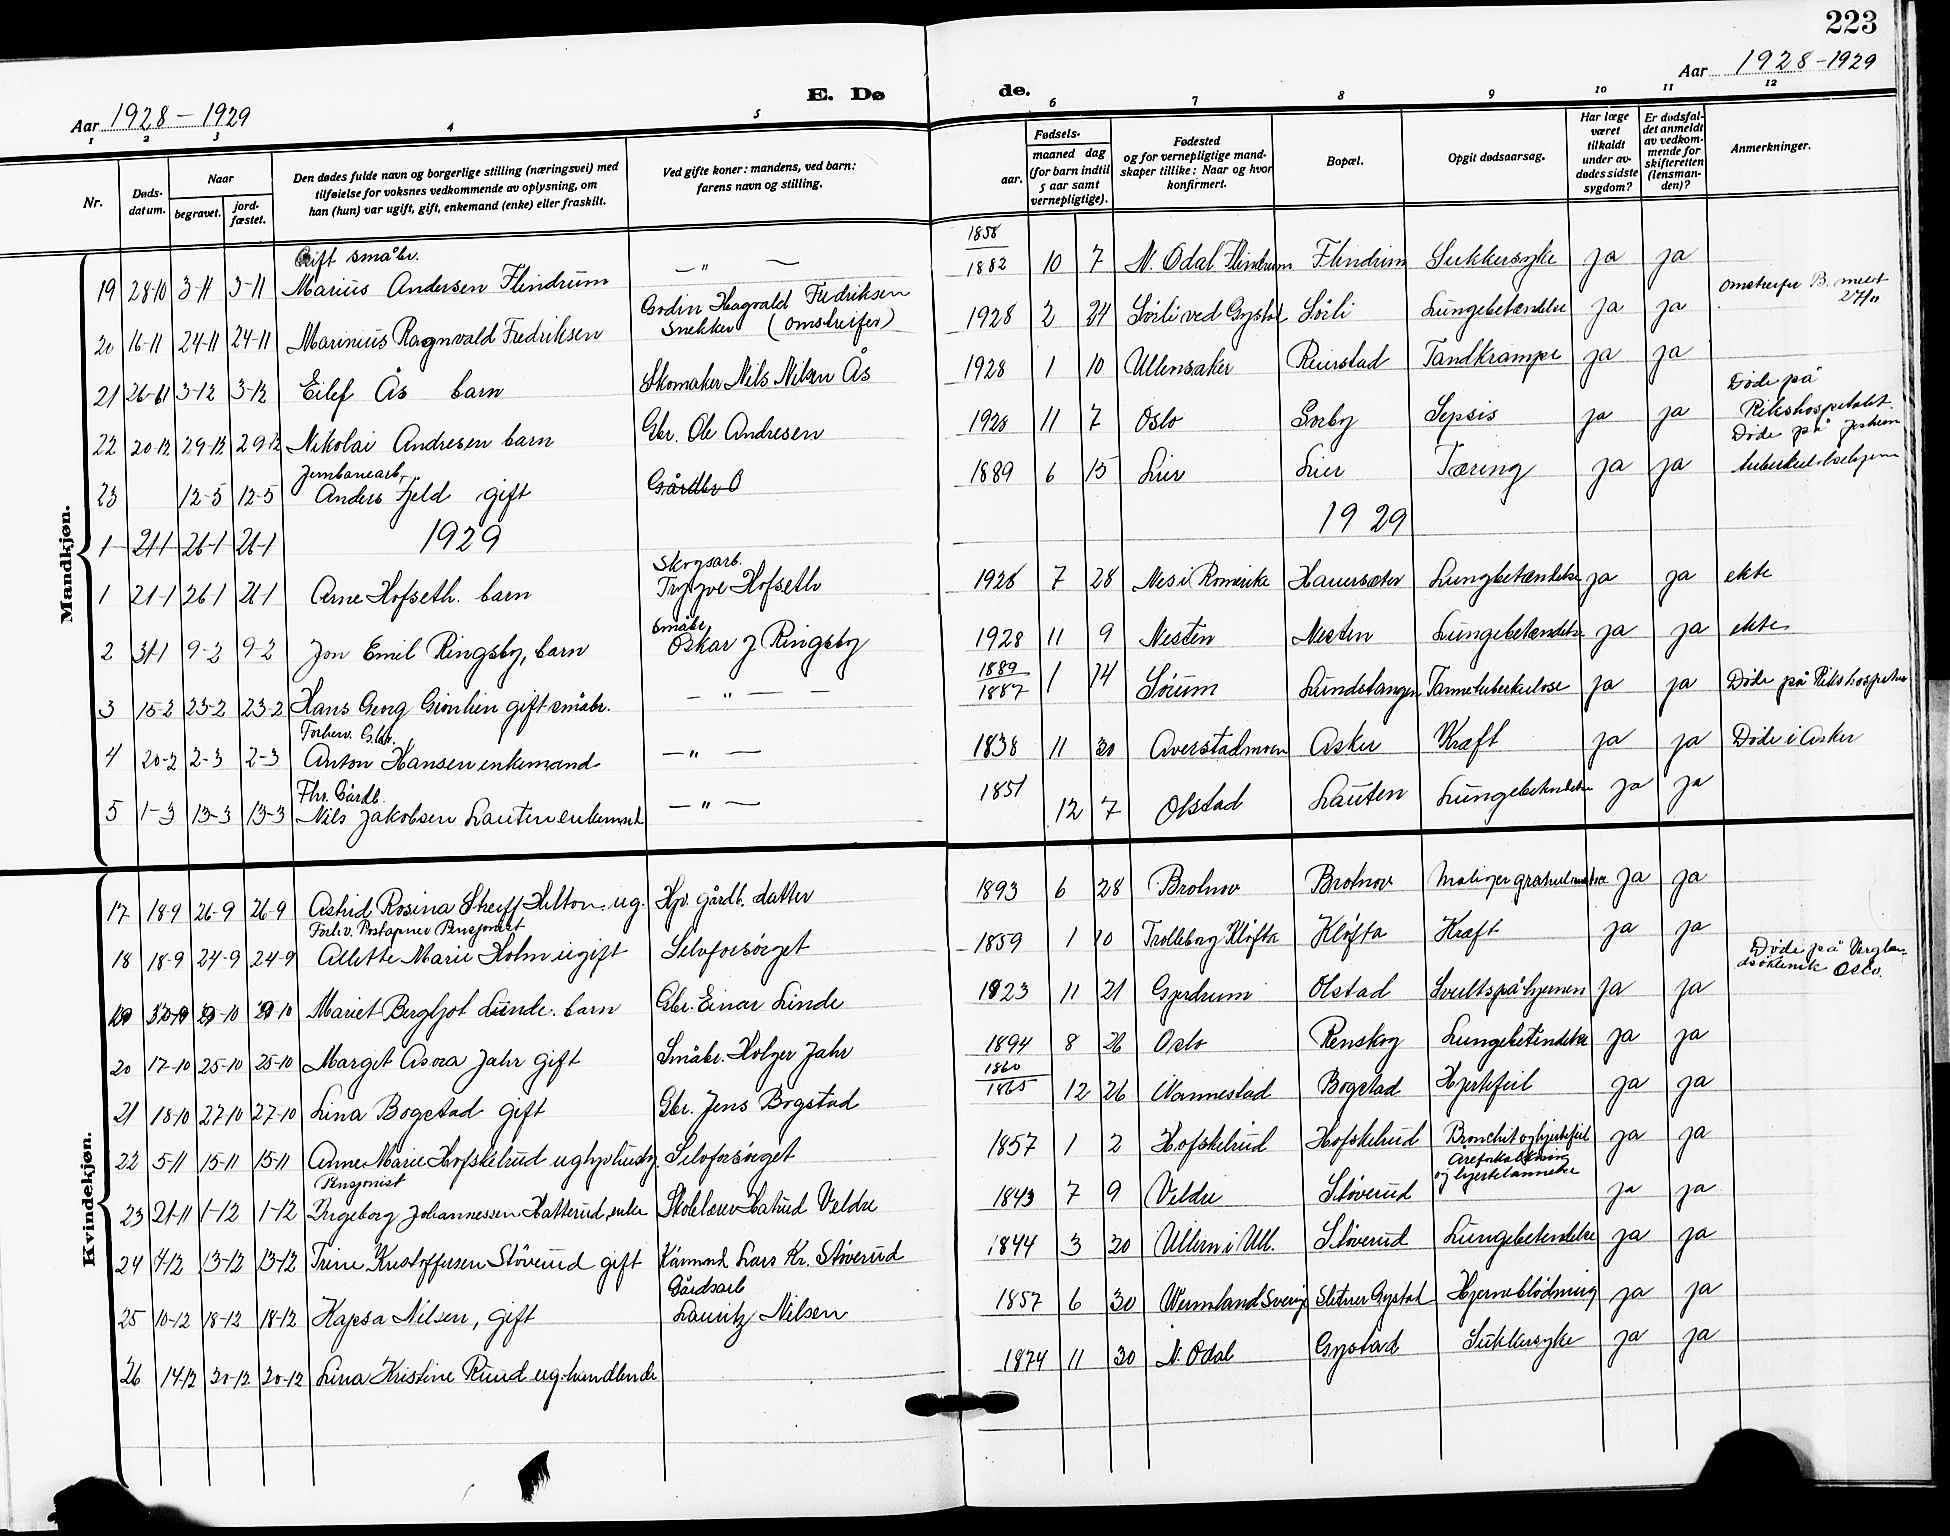 223
Aar 1928-1929
Aar 1928-1929
E. Dø de.
1 2 3 4 5 6 7 8 9 10 11 12
Nr.
Døds-
datum.
Naar
begravet.
jord-
fæstet.
Den dødes fulde navn og borgerlige stilling (næringsvei) med
tilføielse for voksnes vedkommende av oplysning, om
han (hun) var ugift, gift, enkemand (enke) eller fraskilt.
Ved gifte koner: mandens, ved barn:
farens navn og stilling.
Fødsels-
aar.
maaned dag
(for barn indtil
5 aar samt
vernepligtige).
Fødested
og for vernepligtige mand-
skaper tillike: Naar og hvor
konfirmert.
Bopæl.
Opgit dødsaarsag.
Har læge
været
tilkaldt
under av-
dødes sidste
sygdom?
Er dødsfal-
det anmeldt
av vedkom-
mende for
skifteretten
(lensman-
den)?
Anmerkninger.
Mandkjøn.
Gift småbr.
19 28-10 3-11 3-11 Marius Andersen Flindrum — " — 1882 10 7 N. Odal Flindrum Flindrum Sukkersyke ja ja
20 16-11 24-11 24-11 Marinius Ragnvald Fredriksen Hagvald Fredriksen Snekker (omstreifer) 1928 2 24 Sørli ved Gystad Sørli Lungebetændelse ja ja omstreifer B.
21 26-11 3-12 3-12 Eilef Ås barn Skomaker Nils Nilsen Ås 1928 1 10 Ullensaker Reierstad Tandkrampe ja ja
22 20-12 29-12 29-12 Nikolai Andresen barn Gbr. Ole Andresen 1928 11 7 Oslo Sepsis ja ja Døde på Rikshospitalet
Jernbanearb.
23 12-5 12-5 Anders Fjeld gift Gårdbr O 1889 6 15 Lier Lier Tæring ja ja Døde på
1 21-1 26-1 26-1 1929 1929
Skogsarb.
1 21-1 26-1 26-1 Arne Hofseth. barn Trygve Hofseth 1928 7 28 Nes i Romerike Hauersæter Lungbetændelse ja ja ekte
Småbr.
2 31-1 9-2 9-2 Jon Emil Ringsby, barn Oskar J Ringsby 1928 11 9 Nesten Nesten Lungebetændelse ja ja ekte
1889
3 15-2 23-2 23-2 Hans Georg gift småbr. — " — — 1887 1 14 Sørum Lundstangen Tarmtuberkulose ja ja Døde på Rikshospitalet
4 20-2 2-3 2-3 Anton Hansen enkemand — " — 1838 11 30 Averstadmoen Asker Kræft ja ja Døde i Asker
Fhv. Gårdb.
5 1-3 13-3 13-3 Nils Jakobsen Lauten enkemand — " — 1851 12 7 Olstad Lauten Lungebetændelse ja ja
Kvindekjøn.
17 18-9 26-9 26-9 Astrid Rosina Hilton. ug. gårdb. datter 1893 6 28 Brotnov Brotnov ja ja
Forhv. Postapner Pensjonist
18 18-9 24-9 24-9 Alette Marie Holm ugift Selvforsørget 1859 1 10 Trollborg Kløfta Kløfta Kræft ja ja
19 Mariet Bergljot Linde. barn Gbr. Einar Linde 1923 11 21 Gjerdrum Olstad Svulst på hjernen ja ja Døde på klinik Oslo.
20 17-10 25-10 25-10 Margit Asora Jahr gift Småbr. Holger Jahr 1894 8 26 Oslo Renskog Lungebetændelse ja ja
1860
21 18-10 27-10 27-10 Lina Bogstad gift Gbr. Jens Bogstad 1865 12 26 Nannestad Bogstad Hjertefeil ja ja
22 5-11 15-11 15-11 Anne Marie Hofskelrud ug Selvforsørget 1857 1 2 Hofskelrud Hofskelrud Bronchit og hjertefeil ja ja
Pensjonist
23 21-11 1-12 1-12 Ingeborg Johannessen Hatterud, enke Veldre 1843 7 9 Veldre Støverud Åreforkalkning og hjertelammelse ja ja
24 4-12 13-12 13-12 Trine Kristoffersen Støverud gift Kårmand Lars Kr. Støverud 1844 3 20 Ullern i Ull. Støverud Lungebetændelse ja ja
Gårdsarb
25 10-12 18-12 18-12 Kapsa Nilsen, gift Lauritz Nilsen 1857 6 30 Wermland Sverige Slitner Gystad Hjerneblødning ja ja
26 14-12 20-12 20-12 Lina Kristine Ruud ug. handlende 1874 11 30 N. Odal Gystad Sukkersyke ja ja